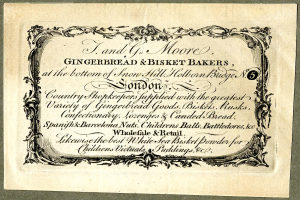 J. and G. Moore,
GINGERBREAD & BISKET BAKERS,
at the bottom of Snow Hill, Holborn Bridge No. 5
London,
Country Shopkeepers supplied with the greatest
Variety of Gingerbread Goods, Biskets, Rusks,
Confectionary, Lozenges & Canded Bread,
Spanish & Barcelona Nuts, Childrens Balls, Battledores, &c.
Wholesale & Retail,
Likewise the best White Sea Bisket Powder for
Childrens Victuals, Puddings, &c.